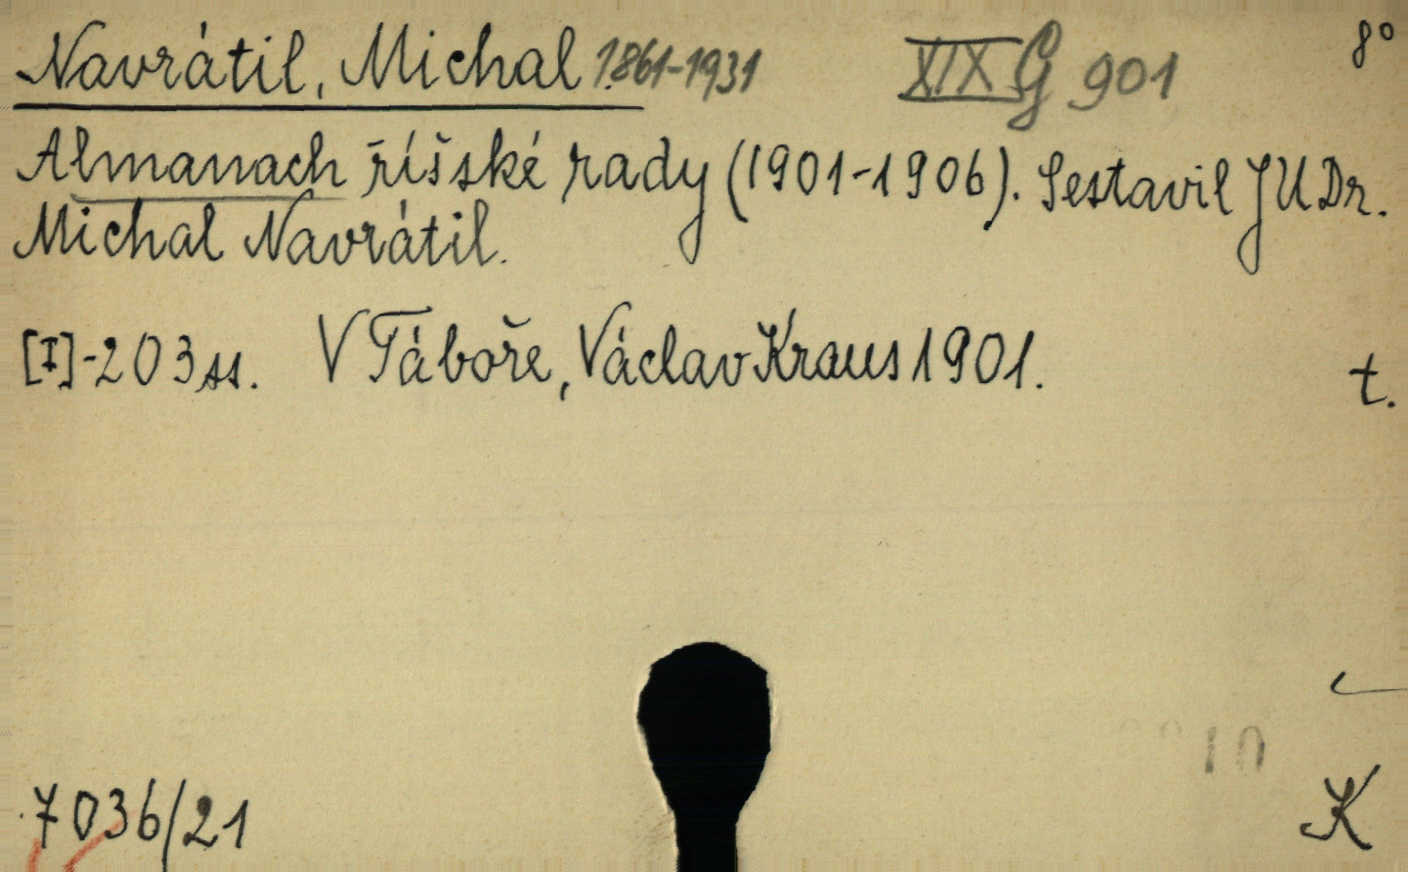 Navrátil, Michal. 1861-1931 XIX G 901 8°
Almanach říšské rady (1901-1906). Sestavil JUDr.
Michal Navrátil.
[I]-203 ss. V Táboře, Václav Kraus 1901. t.
7036/21 K